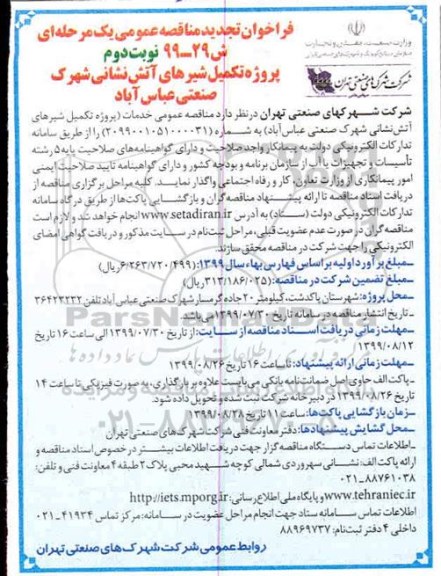 فراخوان تجدید مناقصه عمومی یک مرحله‌ای
ش ۲۹-۹۹ نوبت دوم
پروژه تکمیل شیرهای آتش نشانی شهرک
صنعتی عباس آباد
وزارت صنعت، معدن و تجارت
شرکت شهرک‌های صنعتی تهران
شرکت شهرکهای صنعتی تهران در نظر دارد مناقصه عمومی خدمات (پروژه تکمیل شیرهای
آتش نشانی شهرک صنعتی عباس آباد) به شماره (۲۰۹۹۰۰۱۰۵۱۰۰۰۰۳۱) را از طریق سامانه
تدارکات الکترونیکی دولت به پیمانکار واجد صلاحیت و دارای گواهینامه‌های صلاحیت پایه ۵ رشته
تأسیسات و تجهیزات یا آب از سازمان برنامه و بودجه کشور و دارای گواهینامه تایید صلاحیت ایمنی
امور پیمانکاری از وزارت تعاون، کار و رفاه اجتماعی واگذار نمایند. کلیه مراحل برگزاری مناقصه از
دریافت اسناد مناقصه تا ارائه پیشنهاد مناقصه گران و بازگشایی پاکت‌ها از طریق درگاه سامانه
تدارکات الکترونیکی دولت (ستاد) به آدرس www.setadiran.ir انجام خواهد شد و لازم است
مناقصه گران در صورت عدم عضویت قبلی، مراحل ثبت نام در سایت مذکور و دریافت گواهی امضای
الکترونیکی را جهت شرکت در مناقصه محقق سازند.
-مبلغ برآورد اولیه بر اساس فهارس بهاء سال ۱۳۹۹: (۶/۲۶۳/۷۲۰/۴۹۹ ریال)
-مبلغ تضمین شرکت در مناقصه: (۳۱۳/۱۸۶/۰۲۵ ریال)
-محل پروژه: شهرستان پاکدشت، کیلومتر ۲۰ جاده گرمسار شهرک صنعتی عباس آباد تلفن ۳۶۴۲۲۲۳۲
- تاریخ انتشار مناقصه در سامانه تاریخ ۱۳۹۹/۰۷/۳۰ می باشد
-مهلت زمانی دریافت اسناد مناقصه از سایت: از تاریخ ۱۳۹۹/۰۷/۳۰ الی ساعت ۱۶ تاریخ
۱۳۹۹/۰۸/۱۲
-مهلت زمانی ارائه پیشنهاد: تا ساعت ۱۶ تاریخ ۱۳۹۹/۰۸/۲۶
-پاکت الف حاوی اصل ضمانت نامه بانکی می بایست علاوه بر بارگذاری، به صورت فیزیکی تا ساعت ۱۴
تاریخ ۱۳۹۹/۰۸/۲۶ در دبیرخانه شرکت ثبت شده و تحویل داده شود.
-زمان بازگشایی پاکت‌ها: ساعت ۱۱ تاریخ ۱۳۹۹/۰۸/۲۸
-محل گشایش پیشنهادها: دفتر معاونت فنی شرکت شهرک‌های صنعتی تهران
-اطلاعات تماس دستگاه مناقصه گزار جهت دریافت اطلاعات بیشتر در خصوص اسناد مناقصه و
ارائه پاکت الف: نشانی سهروردی شمالی کوچه شهید محبی پلاک ۲ طبقه ۴ معاونت فنی و تلفن:
۰۲۱-۸۸۷۶۱۰۳۸
www.tehraniec.ir و پایگاه ملی اطلاع رسانی: http://iets.mporg.ir
اطلاعات تماس سامانه ستاد جهت انجام مراحل عضویت در سامانه: مرکز تماس ۴۱۹۳۴-۰۲۱
داخلی ۴ دفتر ثبت نام: ۸۸۹۶۹۷۳۷
روابط عمومی شرکت شهرک‌های صنعتی تهران